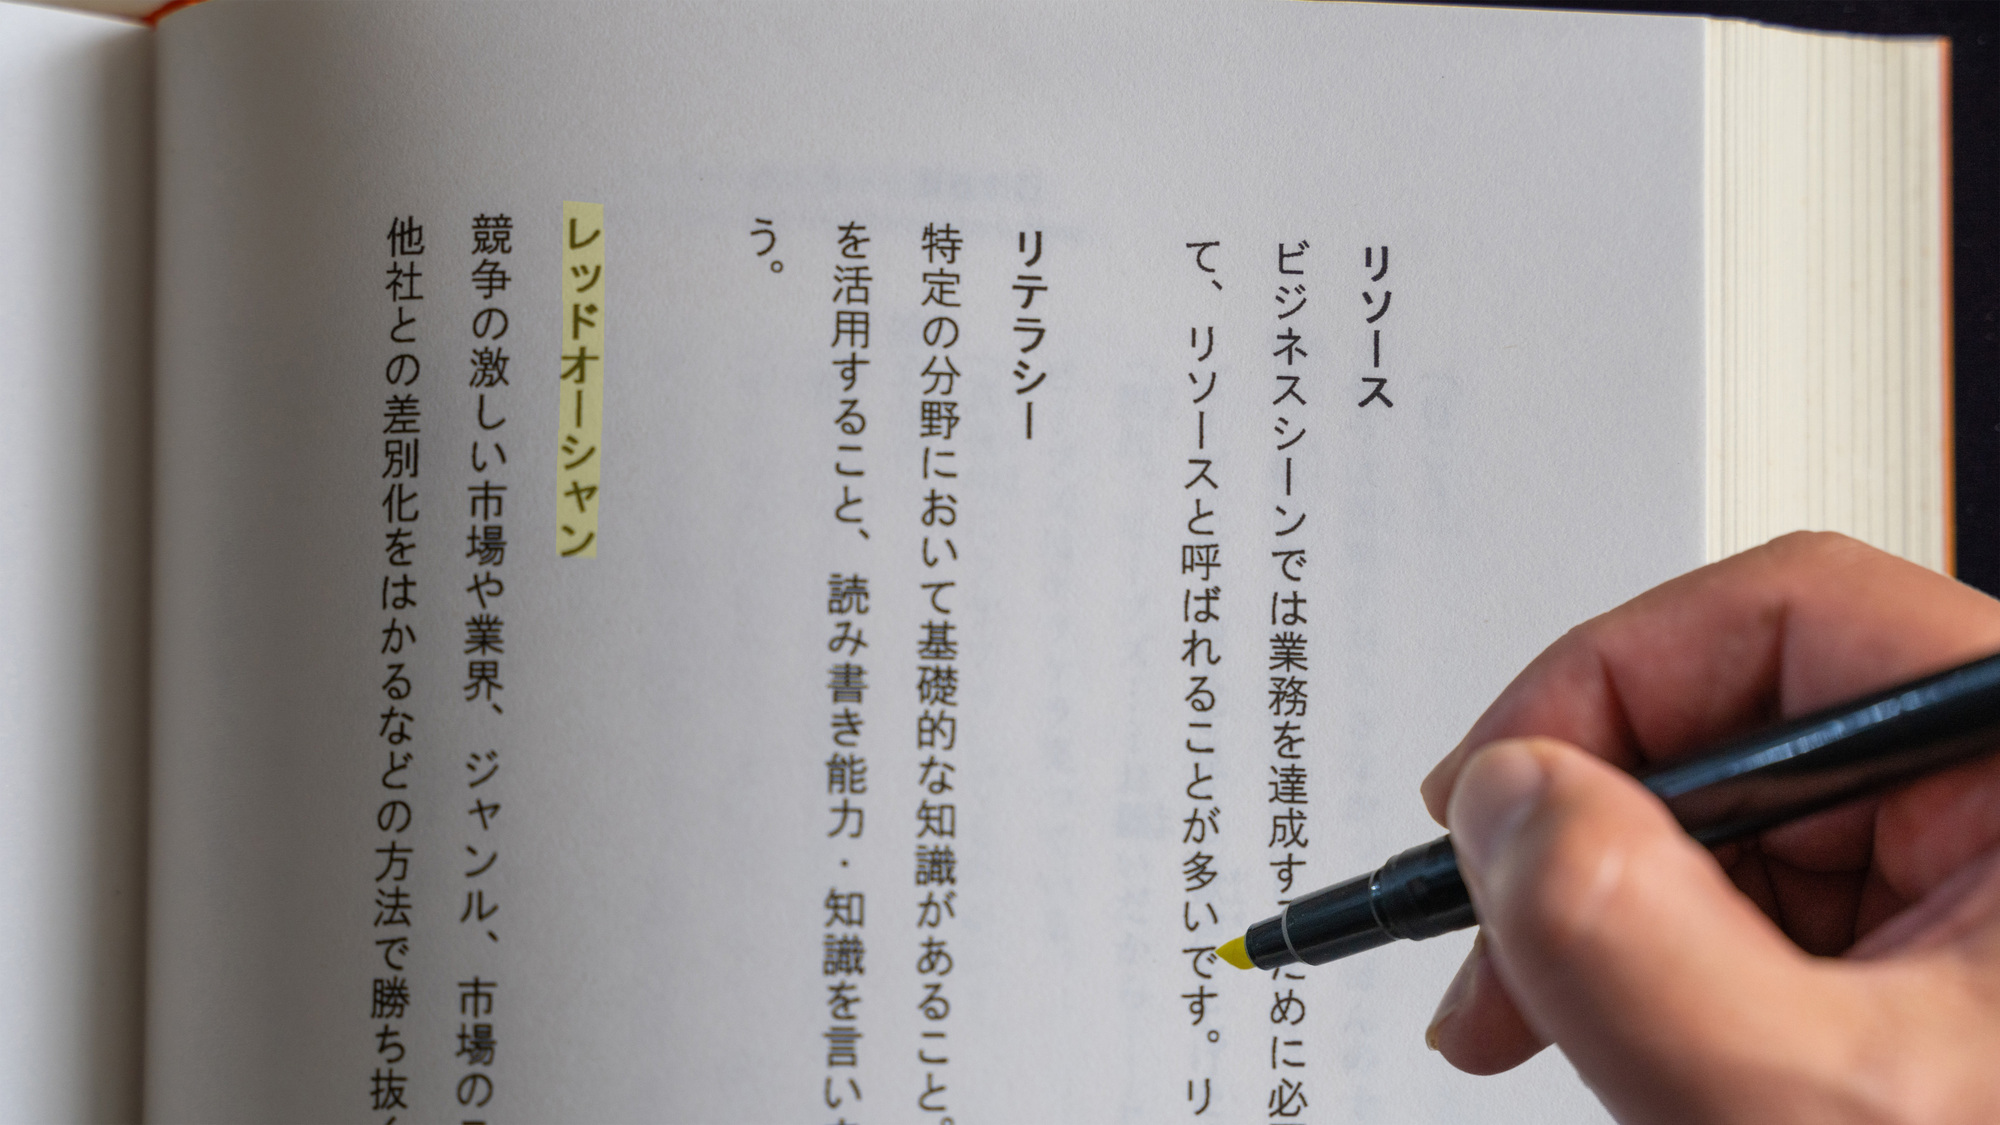 リソース
ビジネスシーンでは業務を達成するために必
て、リソースと呼ばれることが多いです。リ
リテラシー
特定の分野において基礎的な知識があること。
を活用すること、読み書き能力・知識を言い
う。
レッドオーシャン
競争の激しい市場や業界、ジャンル、市場の
他社との差別化をはかるなどの方法で勝ち抜